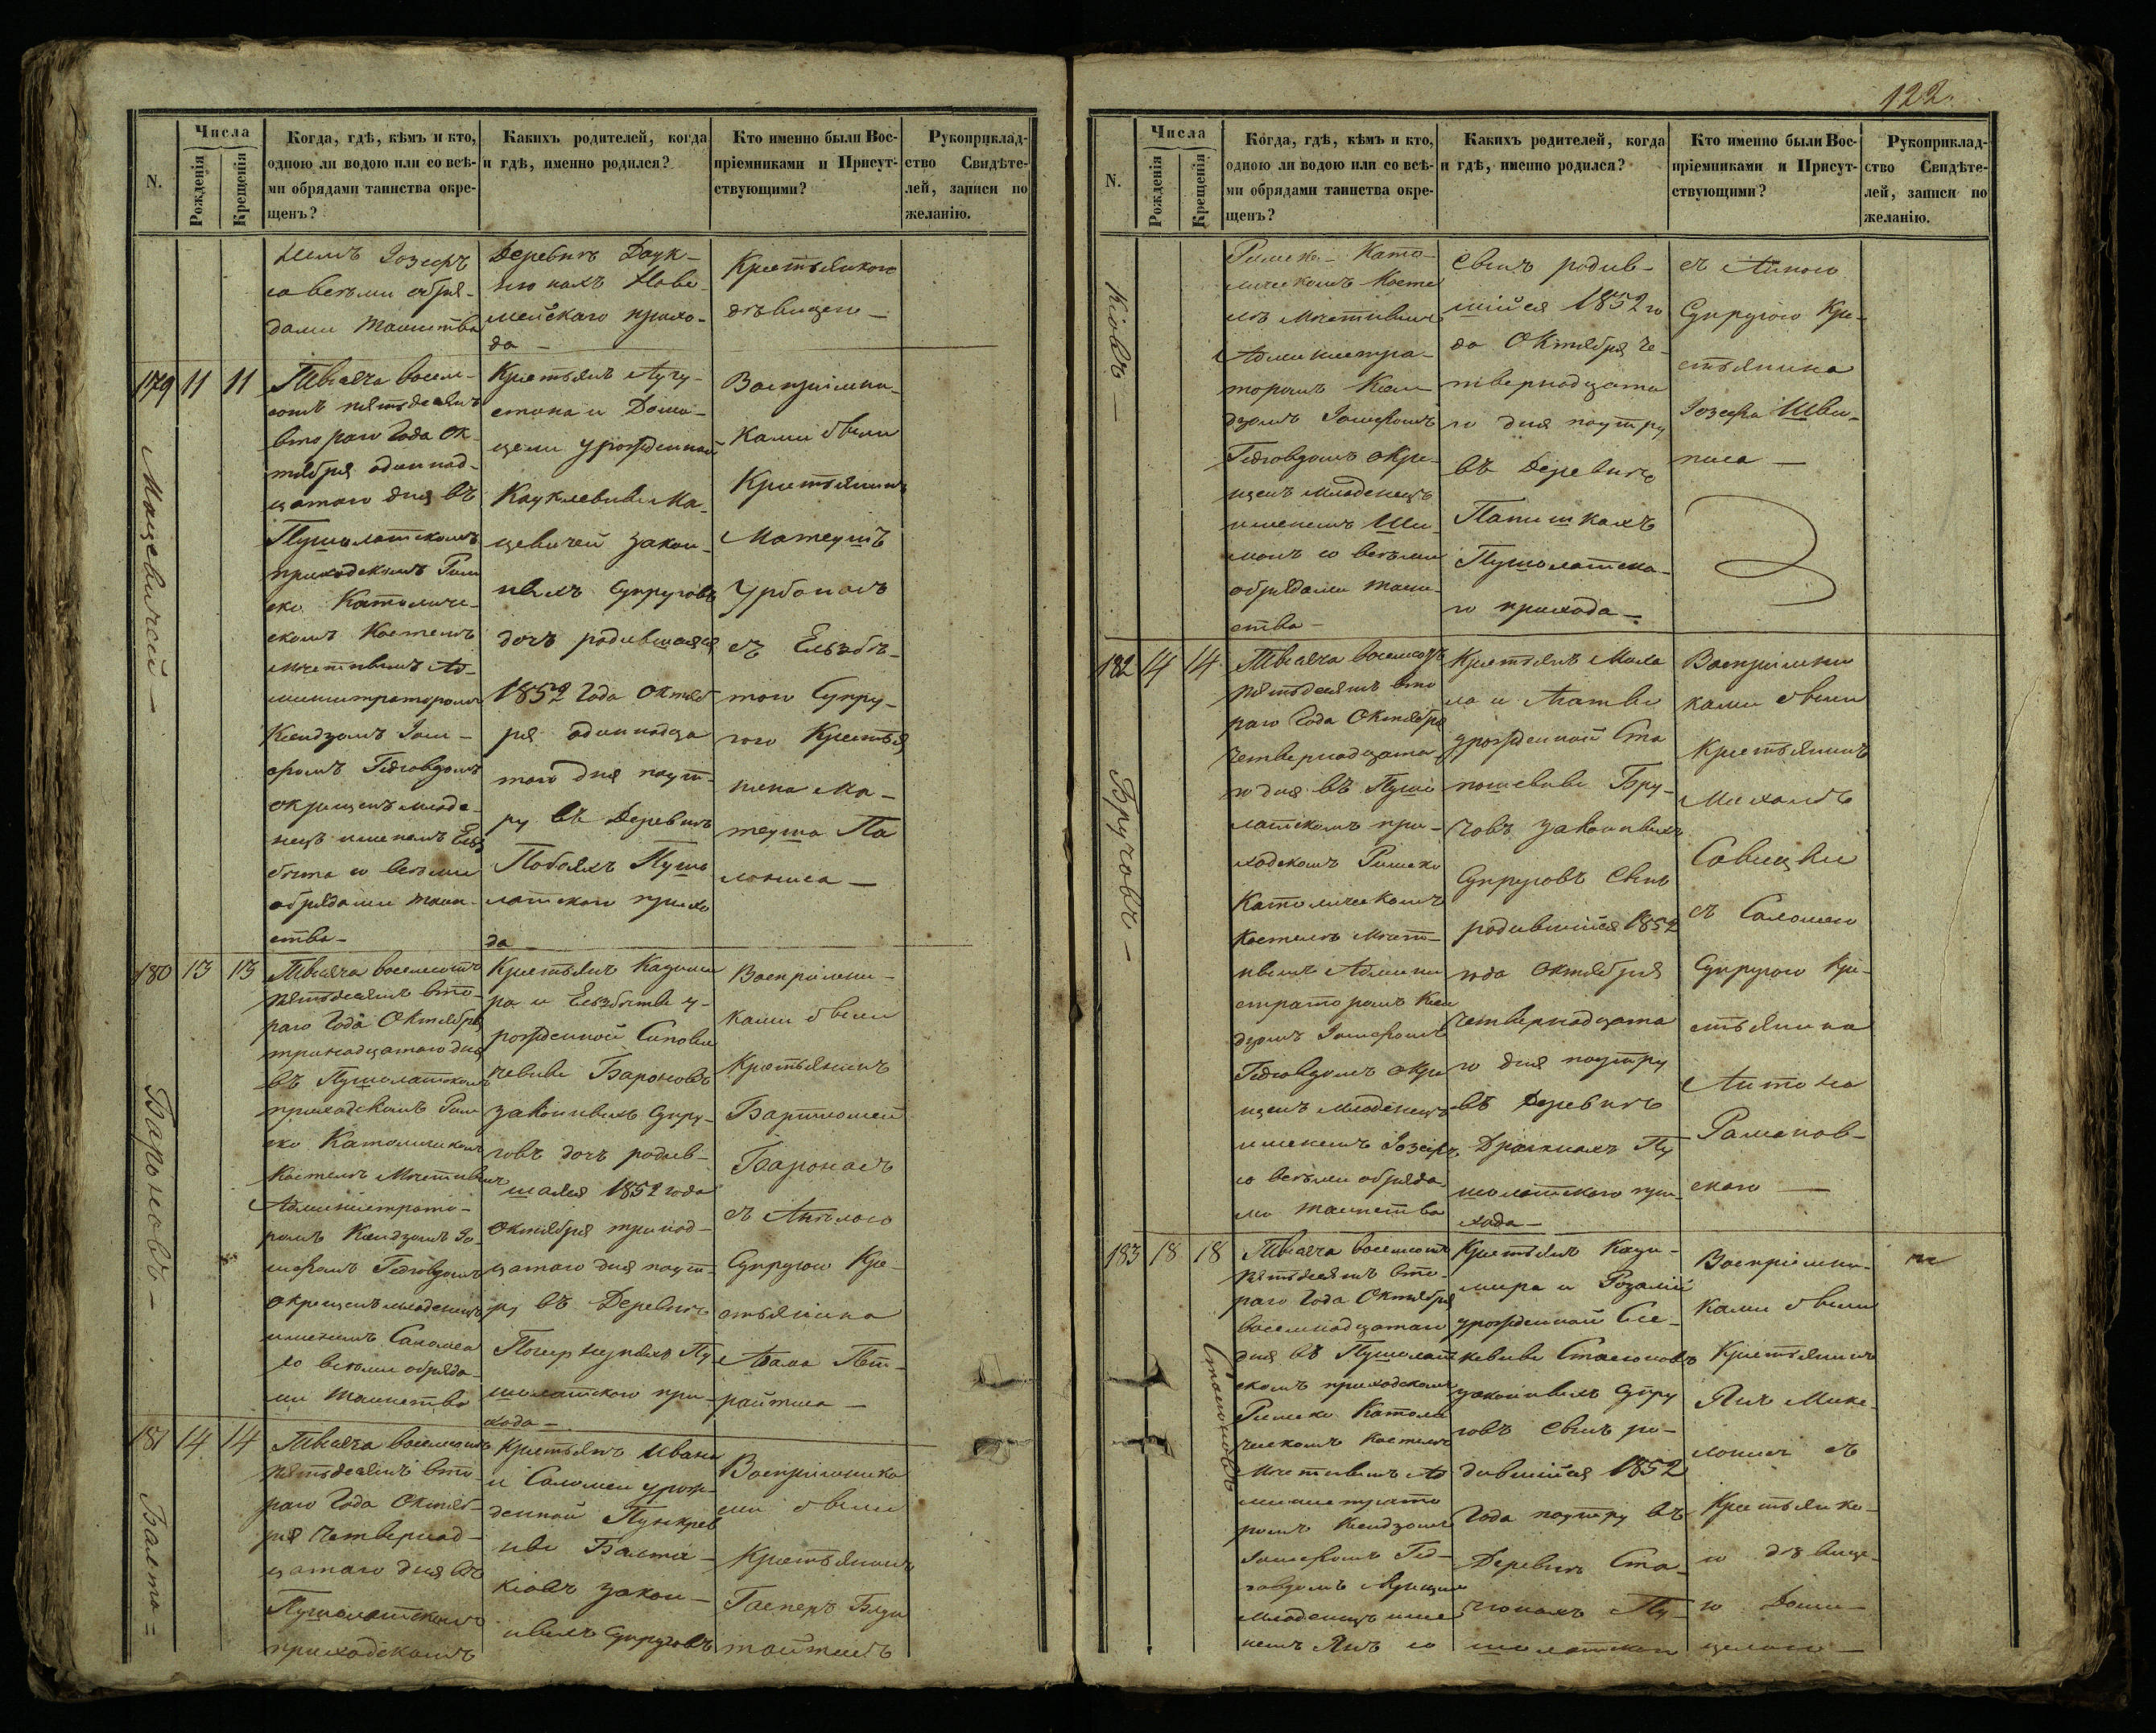 N.
Числа
Рожденія
Крещенія
Когда, гдѣ, кѣмъ и кто,
одною ли водою или со всѣ-
ми обрядами таинства окре-
щенъ?
Какихъ родителей, когда
и гдѣ, именно родился?
Кто именно были Вос-
пріемниками и Присут-
ствующими?
Рукоприклад-
ство Свидѣте-
лей, записи по
желанію.
Іозефъ
со всѣми обря-
дами таинства
Деревнѣ Даук-
Нове-
мейскаго прихо-
да —
Крестьянкою
дѣвицею —
179
11
11
Мацевичей —
Тысяча восем-
сотъ пятьдесятъ
втораго Года Ок-
тября одиннад-
цатаго дня въ
Пушолатскомъ
приходскомъ Рим
ско Католиче-
скомъ Костелѣ
мѣстнымъ Ад-
министраторомъ
Ксендзомъ Іоси-
фомъ Гедговдомъ
окрещенъ младе-
нецъ именемъ Ельз
бѣта со всѣми
обрядами таин-
ства —
Крестьянъ Авгу-
стина и Доми-
цели урожденной
Мa-
цевичей закон-
ныхъ Супруговъ
дочь родившаяся
1852 Года Октяб
ря одиннадца
таго дня поут-
ру въ Деревнѣ
Пушо
латскаго прихо
да —
Воспріемни-
ками были
Крестьянинъ
Матеушъ
Урбанасъ
съ Ельзбѣ-
тою Супру-
гою Крестья
нина Ма-
теуша По
лониса —
180
13
13
Бароновъ —
Тысяча восемсотъ
пятьдесятъ вто-
раго Года Октября
тринадцатаго дня
въ Пушолатскомъ
приходскомъ Рим
ско Католическомъ
Костелѣ мѣстнымъ
Администрато-
ромъ Ксендзомъ Іо-
сифомъ Гедговдомъ
окрещенъ младенецъ
именемъ Саломея
со всѣми обряда-
ми таинства
Крестьянъ Казими
ра и Ельзбѣты у-
рожденной Синкеви
чевны Бароновъ
законныхъ Супру-
говъ дочь родив-
шаяся 1852 года
Октября тринад-
цатаго дня поут-
ру въ Деревнѣ
Пу
шолатскаго при-
хода —
Воспріемни-
ками были
Крестьянинъ
Бартломей
Баронасъ
съ Анелею
Супругою Кре-
стьянина
Адама Пет-
райтиса —
181
14
14
Балтa=
Тысяча восемсотъ
пятьдесятъ вто-
раго Года Октяб-
ря четвернад-
цатаго дня въ
Пушолатскомъ
приходскомъ
Крестьянъ Ивана
и Саломеи урож-
денной
Балта-
кіовъ закон-
ныхъ Супруговъ
Воспріемника
ми были
Крестьянинъ
Гасперъ
122.
N.
Числа
Рожденія
Крещенія
Когда, гдѣ, кѣмъ и кто,
одною ли водою или со всѣ-
ми обрядами таинства окре-
щенъ?
Какихъ родителей, когда
и гдѣ, именно родился?
Кто именно были Вос-
пріемниками и Присут-
ствующими?
Рукоприклад-
ство Свидѣте-
лей, записи по
желанію.
Кіовъ —
Римско- Като-
лическомъ Косте
лѣ мѣстнымъ
Администра-
торомъ Ксен-
дзомъ Іосифомъ
Гедговдомъ окре-
щенъ младенецъ
именемъ Ши-
монъ со всѣми
обрядами таин-
ства —
Сынъ родив-
шійся 1852 го
да Октября че-
твернадцата
го дня поутру
въ Деревнѣ
Папишкахъ
Пушолатска-
го прихода —
съ Анною
Супругою Кре-
стьянина
Іозефа Шви-
писа —
182
14
14
Бруховъ —
Тысяча восемсотъ
пятьдесятъ вто
раго Года Октября
четвернадцата-
го дня въ Пушо
латскомъ при-
ходскомъ Римско
Католическомъ
Костелѣ мѣст-
нымъ Админи
страторомъ Ксен
дзомъ Іосифомъ
Гедговдомъ окре
щенъ младенецъ
именемъ Іозефъ
со всѣми обряда
ми таинства
Крестьянъ
и Агаты
урожденной
законныхъ
Супруговъ Сынъ
родившійся 1852
года Октября
четвернадцата
го дня поутру
въ Деревнѣ
Пу
шолатскаго при-
хода —
Воспріемни
ками были
Крестьянинъ
Савицкій
съ Саломею
Супругою Кре-
стьянина
Антона
Раменов-
скаго —
183
18
18
Тысяча восемсотъ
пятьдесятъ вто-
раго Года Октября
восемнадцатаго
дня въ Пушолат
скомъ приходскомъ
Римско Католи
ческомъ Костелѣ
мѣстнымъ Ад
министрато
ромъ Ксендзомъ
Іосифомъ Гед-
говдомъ
младенецъ име
немъ Янъ со
Крестьянъ Кази-
мира и Розаліи
урожденной
законныхъ Супру
говъ Сынъ ро-
дившійся 1852
Года поутру въ
Деревнѣ Ста-
Пу-
шолатскаго
Воспріемни-
ками были
Крестьянинъ
Янъ
съ
Крестьянко-
ю дѣвице-
ю Доми-
целею —